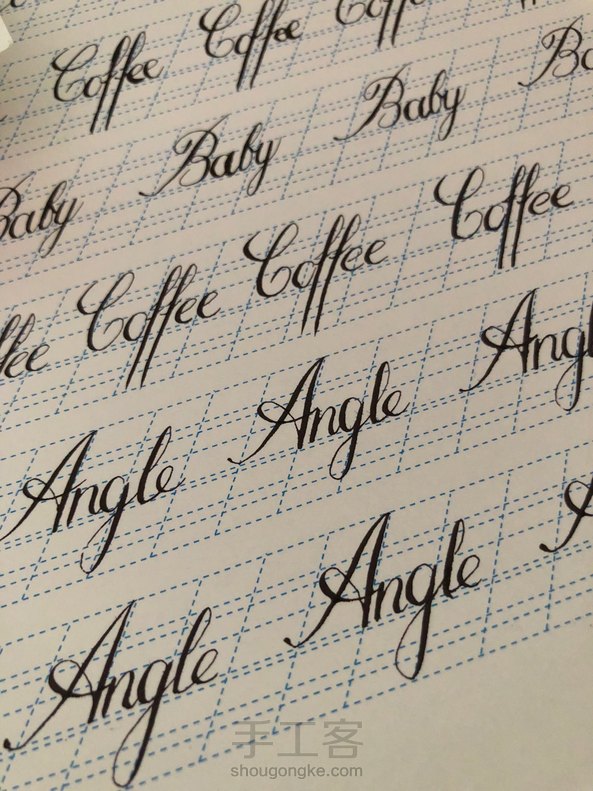 Coffee Coffee Coffee
Baby Baby Baby
Coffee Coffee Coffee
Angle Angle Angle
Angle Angle
手工客
shougongke.com